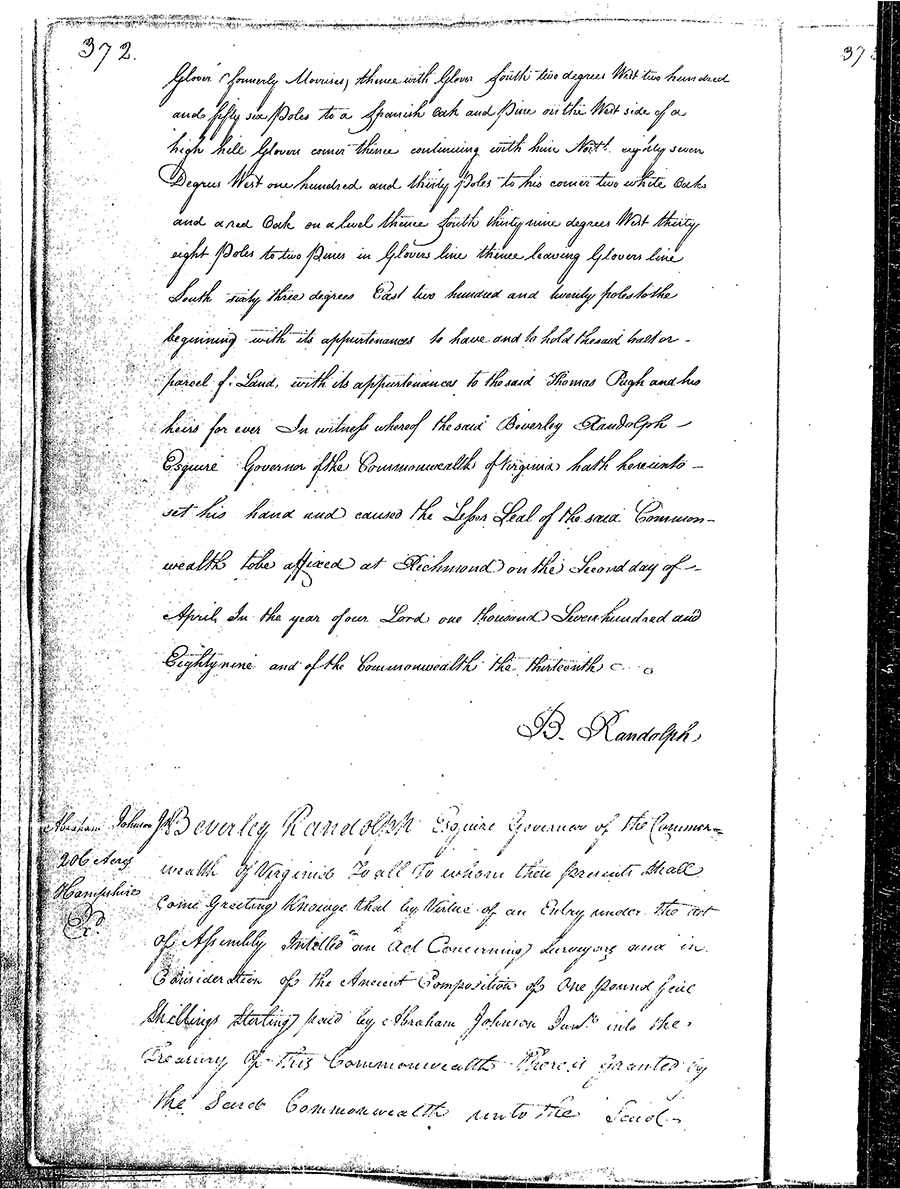 372.
373
Glover (formerly Morrises) thence with Glover South two degrees West two hundred
and fifty six Poles to a Spanish Oak and Pine on the West side of a
high hill Glovers corner thence continuing with him North eighty seven
Degrees West one hundred and thirty Poles to his corner two white Oaks
and a red Oak on a level thence South thirty nine degrees West thirty
eight Poles to two Pines in Glovers line thence leaving Glovers line
South sixty three degrees East two hundred and twenty poles to the
beginning with its appurtenances to have and to hold the said tract or
parcel of Land, with its appurtenances to the said Thomas Pugh and his
heirs for ever In witness whereof the said Beverley Randolph
Esquire Governor of the Commonwealth of Virginia hath hereunto
set his hand and caused the Lesser Seal of the said Common-
wealth to be affixed at Richmond on the Second day of
April, In the year of our Lord one thousand Seven hundred and
Eighty nine and of the Commonwealth the thirteenth
B. Randolph
Abraham Johnson Jr
206 Acres
Hampshire
Beverley Randolph Esquire Governor of the Common=
wealth of Virginia To all To whom these presents Shall
Come Greeting Knowye that by Virtue of an Entry under the act
of Assembly Intitled "an Act Concerning Surveyors and in
Consideration of the Ancient Composition of One pound five
Shillings Sterling paid by Abraham Johnson Junr. into the
Treasury of this Commonwealth There is granted by
the Said Commonwealth unto the Said